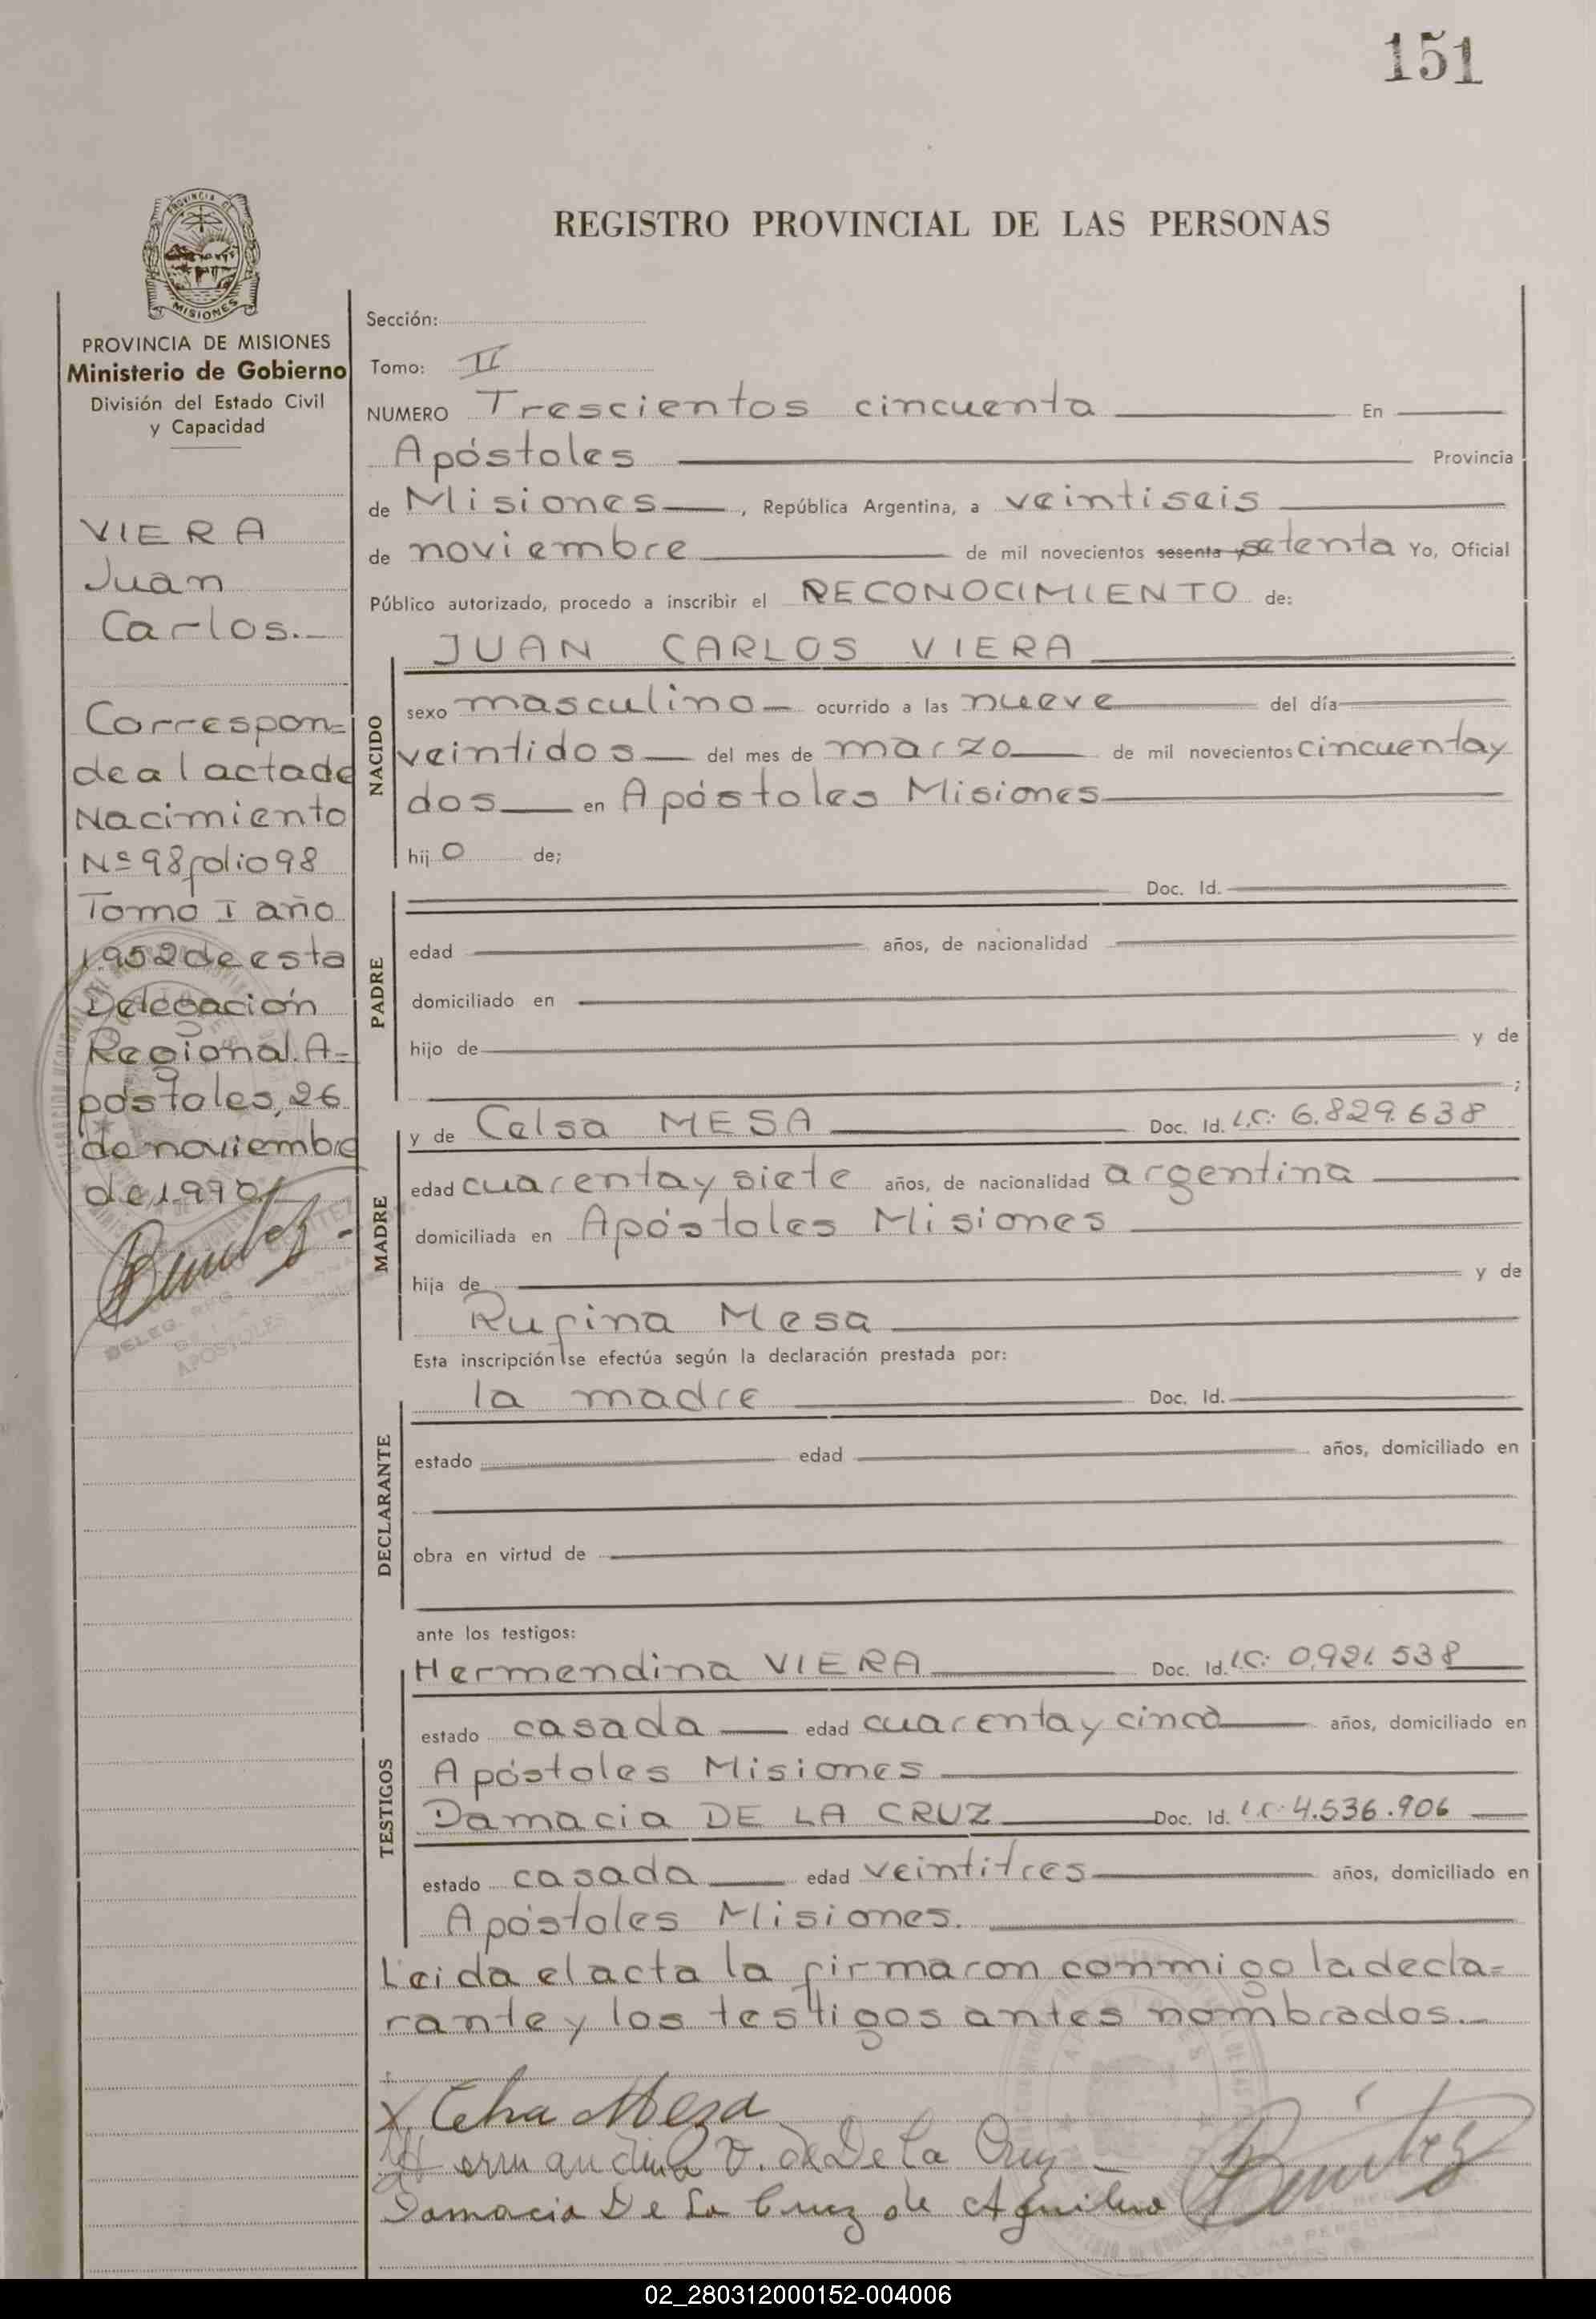 151
PROVINCIA DE
MISIONES
REGISTRO PROVINCIAL DE LAS PERSONAS
PROVINCIA DE MISIONES
Ministerio de Gobierno
División del Estado Civil
y Capacidad
VIERA
Juan
Carlos._
Correspon=
de al acta de
Nacimiento
Nº 98 folio 98
Tomo I año
1.952 de esta
Delegación
Regional. A=
póstoles, 26
de noviembre
de 1.970/
Benitez
DELEG. REG.
APOSTOLES
Sección:
Tomo: II
NUMERO Trescientos cincuenta En
Apóstoles Provincia
de Misiones, República Argentina, a veintiseis
de noviembre de mil novecientos sesenta y setenta Yo, Oficial
Público autorizado, procedo a inscribir el RECONOCIMIENTO de:
JUAN CARLOS VIERA
NACIDO
sexo masculino ocurrido a las nueve del día
veintidos del mes de marzo de mil novecientos cincuenta y
dos en Apóstoles Misiones
hij o de;
PADRE
Doc. Id.
edad años, de nacionalidad
domiciliado en
hijo de y de
;
MADRE
y de Celsa MESA Doc. Id. L.C: 6.829.638
edad cuarenta y siete años, de nacionalidad argentina
domiciliada en Apóstoles Misiones
hija de y de
Rufina Mesa
Esta inscripción se efectúa según la declaración prestada por:
DECLARANTE
la madre Doc. Id.
estado edad años, domiciliado en
obra en virtud de
ante los testigos:
TESTIGOS
Hermendina VIERA Doc. Id. L.C: 0.921.538
estado casada edad cuarenta y cinco años, domiciliado en
Apóstoles Misiones
Damacia DE LA CRUZ Doc. Id. L.C: 4.536.906
estado casada edad veintitres años, domiciliado en
Apóstoles Misiones.
Leida el acta la firmaron conmigo la decla=
rante y los testigos antes nombrados._
x Celsa Mesa
Hermandina V. de De La Cruz
Damacia De La Cruz de Aguilera Benitez
02_280312000152-004006